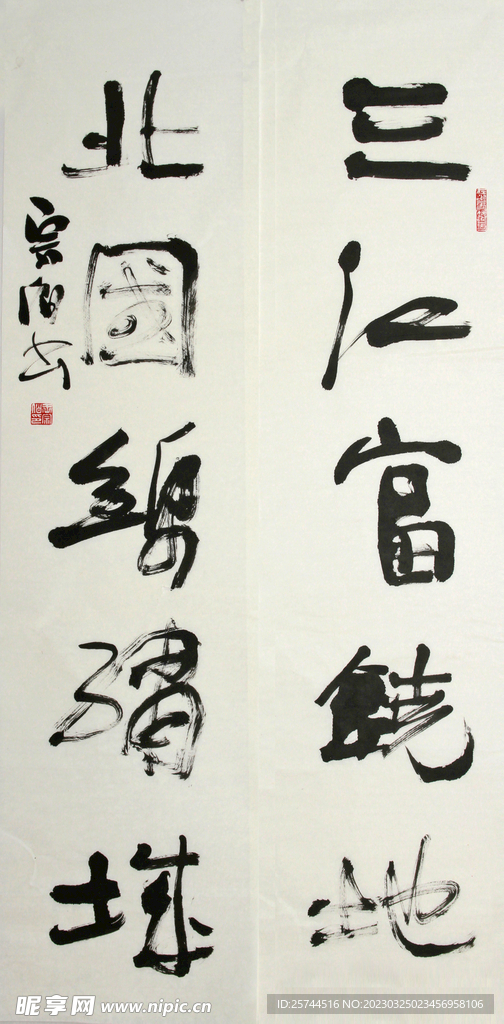 三江富饒地
北國錦繡城
书
昵享网 www.nipic.cn
ID:25744516 NO:20230325023456958106